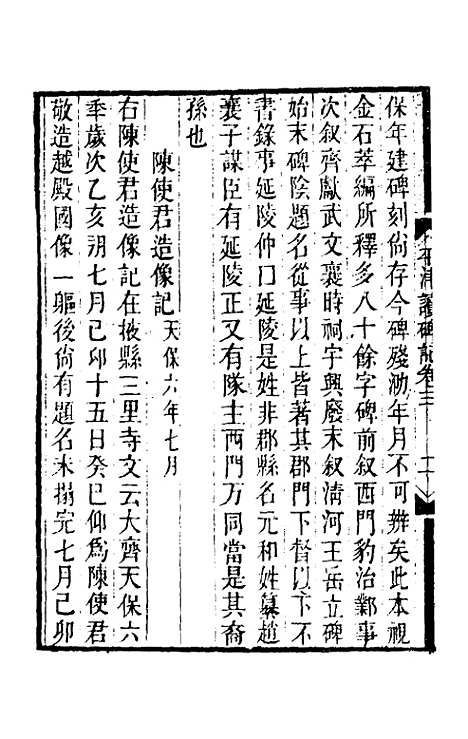 平津讀碑記卷三 二
保年建碑刻尙存今碑殘泐年月不可辨矣此本視
金石萃編所釋多八十餘字碑前叙西門豹治鄴事
次叙齊獻武文襄時祠宇興廢末叙淸河王岳立碑
始末碑陰題名從事以上皆著其郡門下督以下不
書錄事延陵仲囗延陵是姓非郡縣名元和姓纂趙
襄子謀臣有延陵正又有隊主西門万同當是其裔
孫也
陳使君造像記天保六年七月
右陳使君造像記在掖縣三里寺文云大齊天保六
年歲次乙亥朔七月己卯十五日癸巳仰爲陳使君
敬造越殿國像一軀後尙有題名未搨完七月己卯